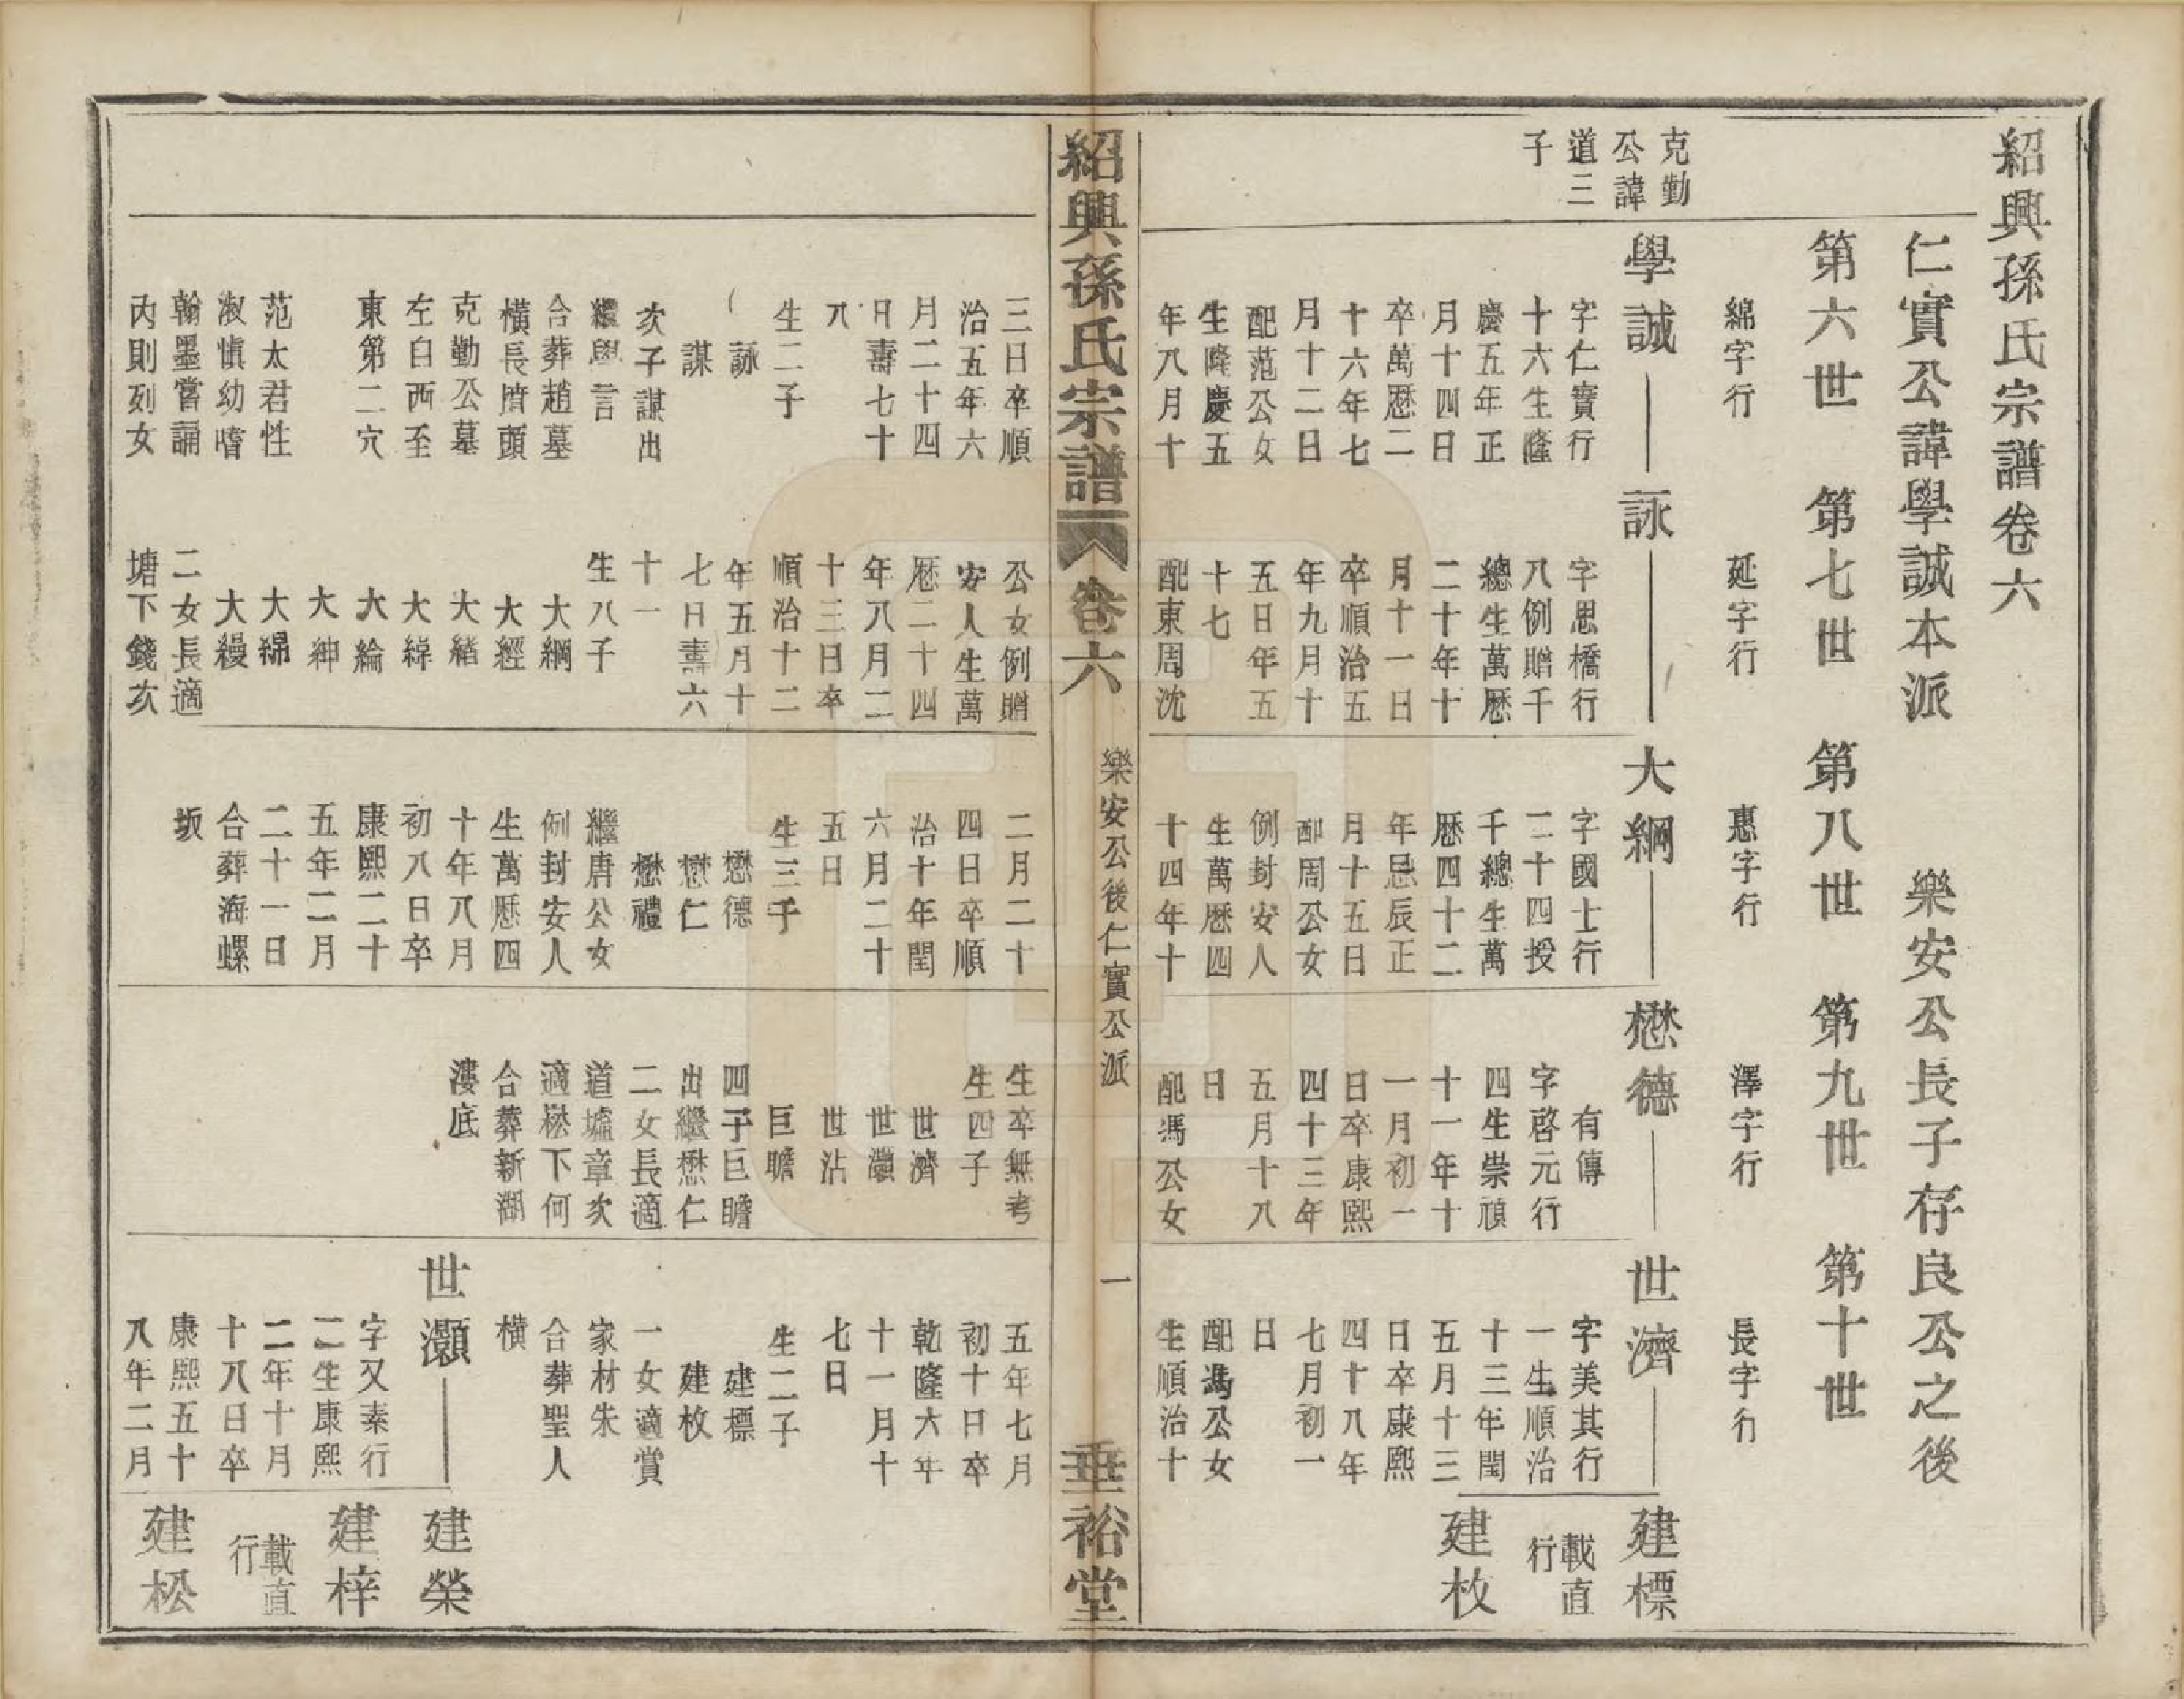 紹興孫氏宗譜卷六
仁實公諱學誠本派　樂安公長子存良公之後
第六世　第七世　第八世　第九世　第十世
綿字行　延字行　惠字行　澤字行　長字行
克勤
公諱
道三
子
學誠
字仁實行
十六生隆
慶五年正
月十四日
卒萬歷二
十六年七
月十二日
配范公女
生隆慶五
年八月十
三日卒順
治五年六
月二十四
日壽七十
八
生二子
詠
謀
次子謀出
繼學言
合葬趙墓
橫長濆頭
克勤公墓
左自西至
東第二穴
范太君性
淑慎幼嗜
翰墨嘗誦
內則列女
詠
字思橋行
八例贈千
總生萬歷
二十年十
月十一日
卒順治五
年九月十
五日年五
十七
配東周沈
公女例贈
安人生萬
歷二十四
年八月二
十三日卒
順治十二
年五月十
七日壽六
十一
生八子
大綱
大經
大緒
大綍
大綸
大紳
大綿
大縵
二女長適
塘下錢次
大綱
字國士行
二十四授
千總生萬
歷四十二
年忌辰正
月十五日
配周公女
例封安人
生萬歷四
十四年十
二月二十
四日卒順
治十年閏
六月二十
五日
生三子
懋德
懋仁
懋禮
繼唐公女
例封安人
生萬歷四
十年八月
初八日卒
康熙二十
五年二月
二十一日
合葬海螺
坂
懋德
有傳
字啓元行
四生崇禎
十一年十
一月初一
日卒康熙
四十三年
五月十八
日
配馮公女
生卒無考
生四子
世濟
世灝
世沾
巨瞻
四子巨瞻
出繼懋仁
二女長適
道墟章次
適樅下何
合葬新湖
漊底
世濟
字美其行
一生順治
十三年閏
五月十三
日卒康熙
四十八年
七月初一
日
配馮公女
生順治十
五年七月
初十日卒
乾隆六年
十一月十
七日
生二子
建標
建枚
一女適賞
家材朱
合葬聖人
橫
世灝
字又素行
二生康熙
二年十月
十八日卒
康熙五十
八年二月
建標
載直
行
建枚
建榮
建梓
載直
行
建松
紹興孫氏宗譜　卷六　樂安公後仁實公派　一　垂裕堂